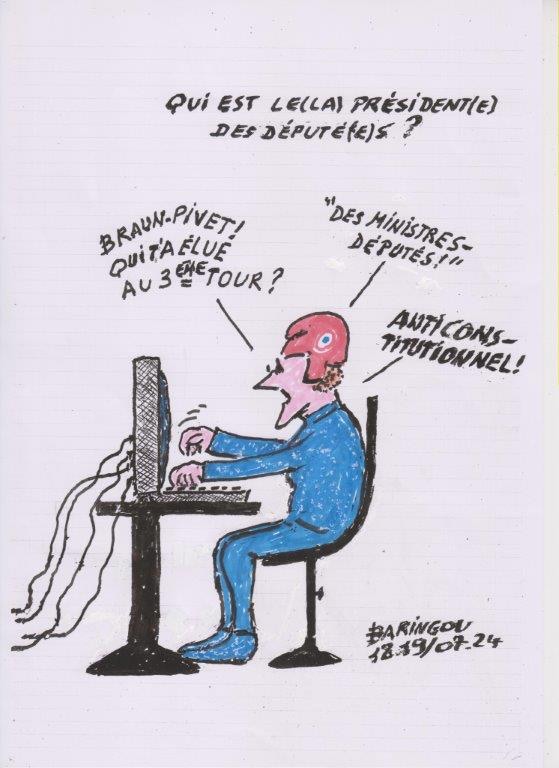 QUI EST LE(LA) PRÉSIDENT(E)
DES DÉPUTÉ(E)S ?
BRAUN-PIVET !
QUI T'A ÉLUÉ
AU 3ÈME TOUR ?
"DES MINISTRES-
DÉPUTÉS !"
ANTICONS-
TITUTIONNEL !
BARINGOU
18.19/07.24